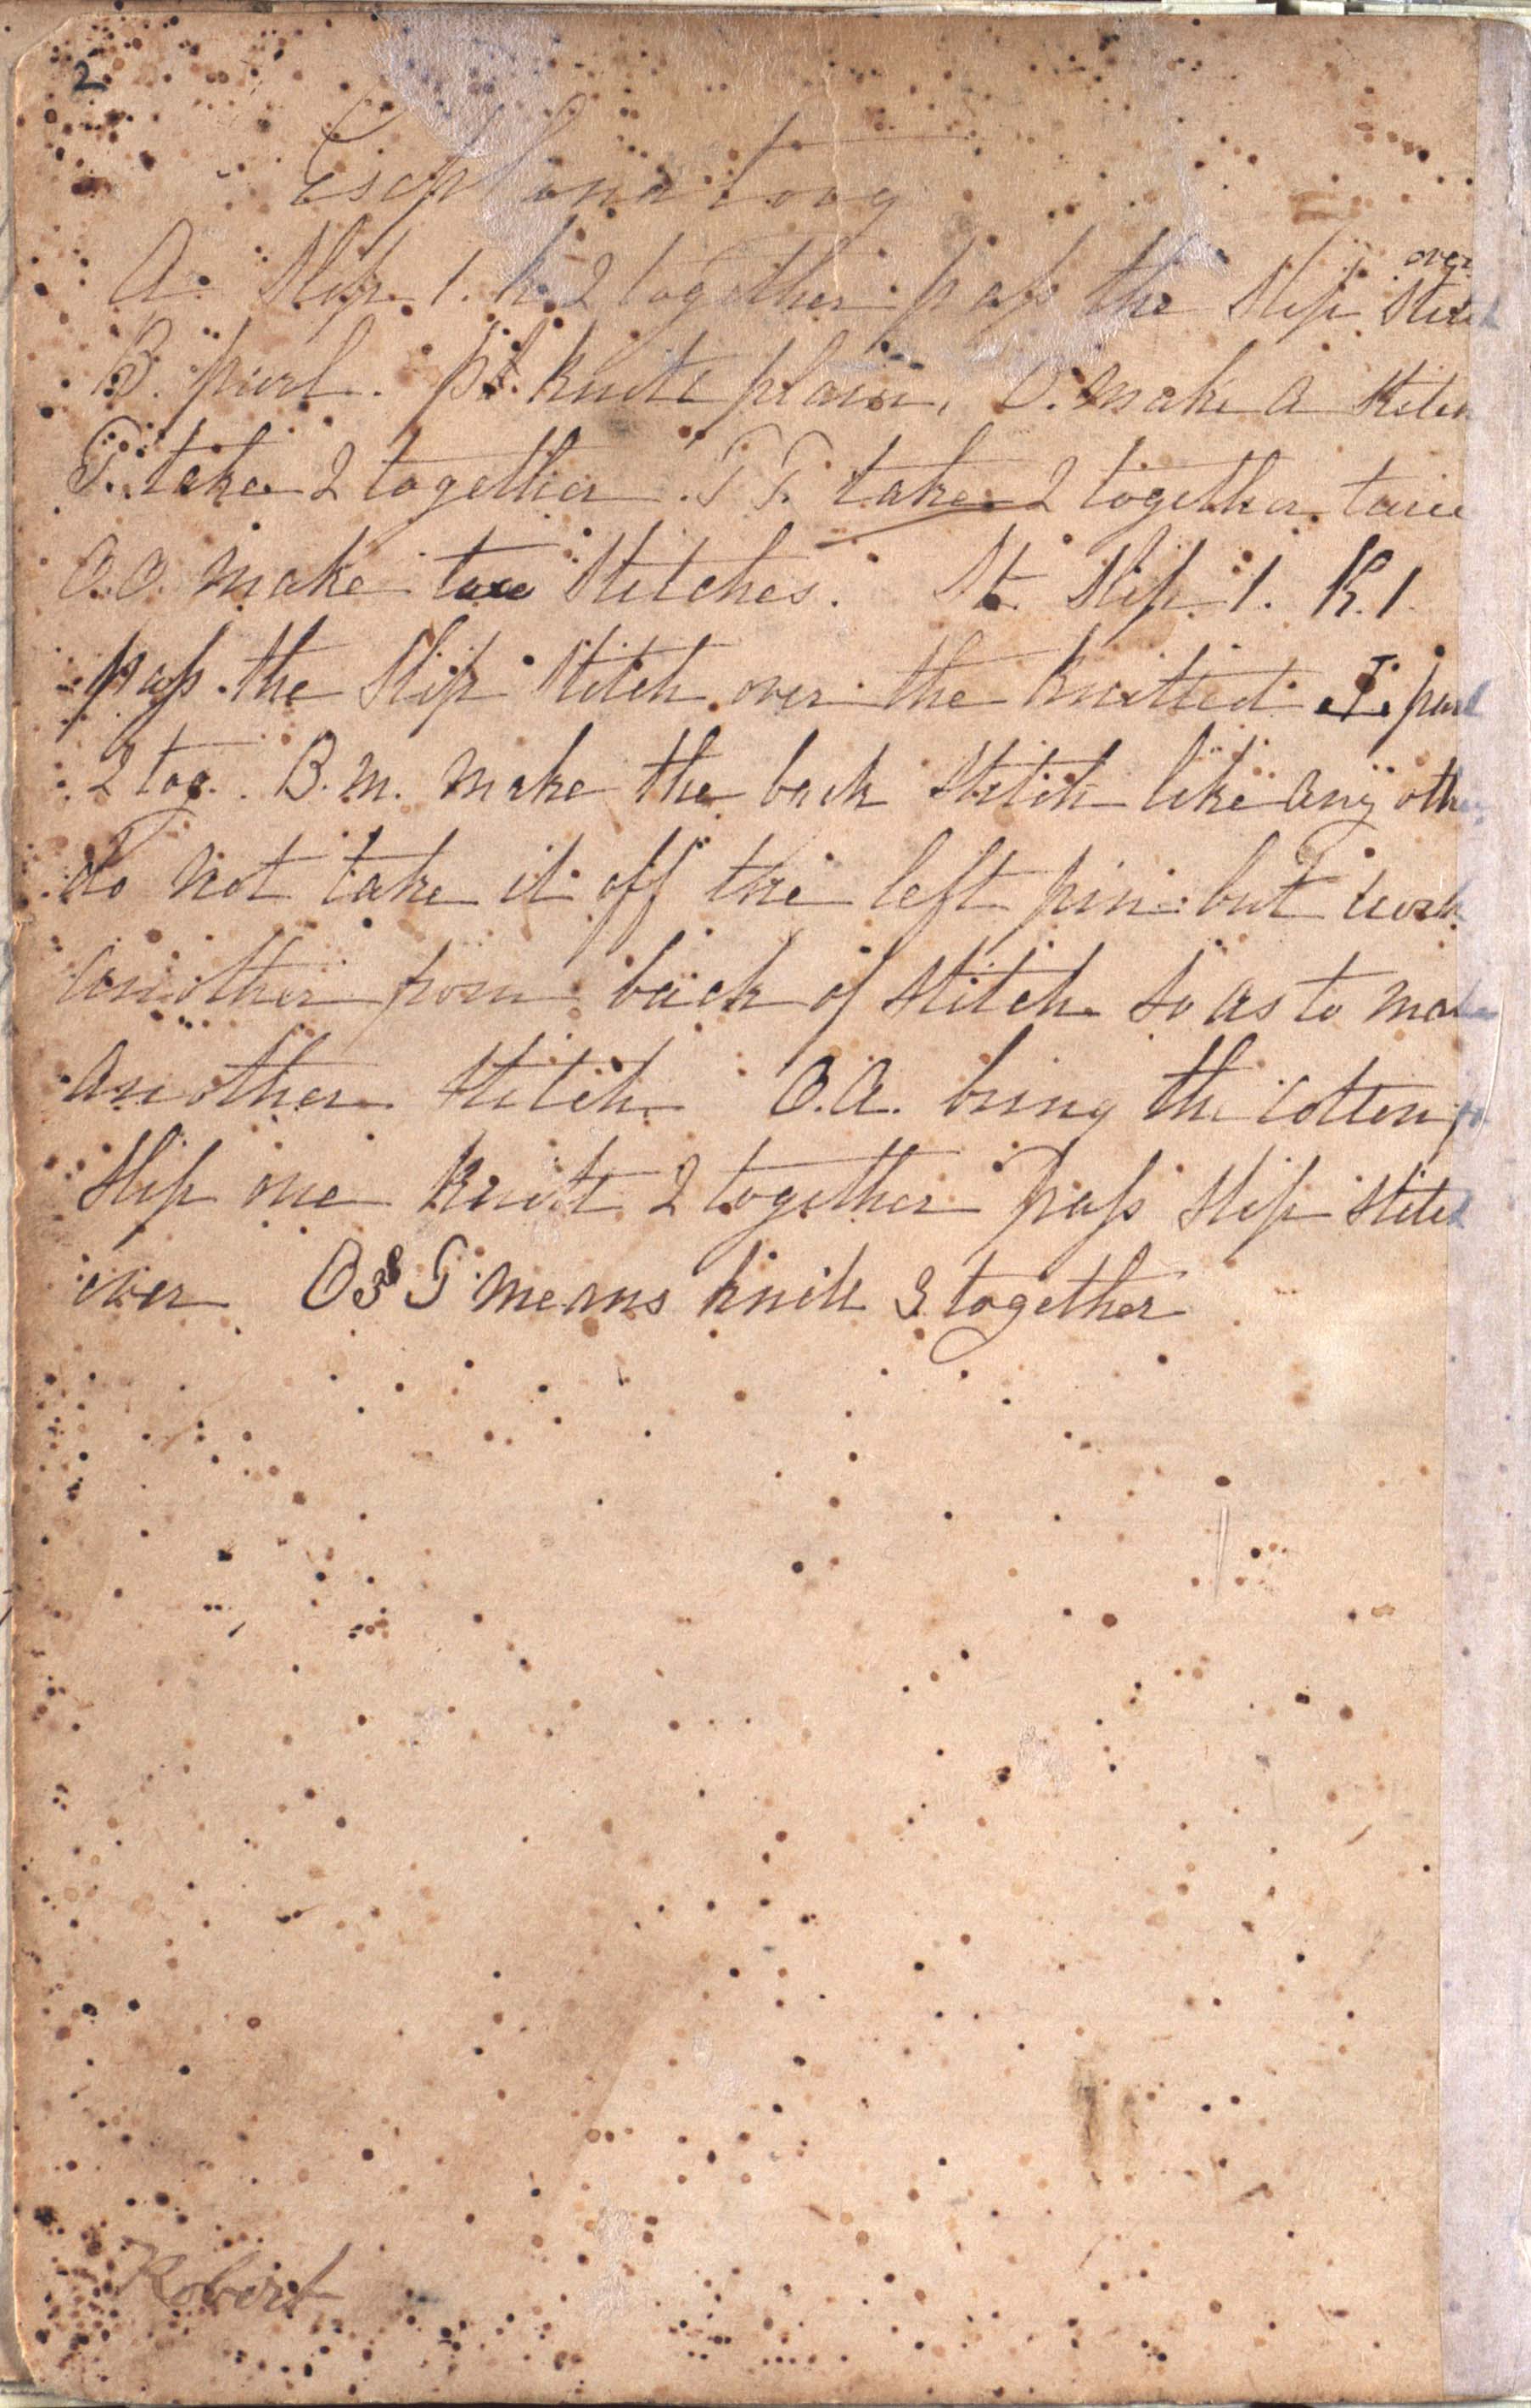 2
Explanatory
A. Slip 1. k 2 together pass the slip stitch over
B. purl. Pl. knitt plain, O. make a stitch
T. take 2 together. T T. take 2 together twice
O.O. make two stitches. St. Slip 1. K.1.
pass the slip stitch over the knitted. T. purl
2 tog. B.M. make the back stitch like any other
do not take it off the left pin but work
another from back of stitch so as to make
another stitch O.A. bring the cotton
slip one knit 2 together pass slip stitch
over O3 T means knitt 3 together
Robert